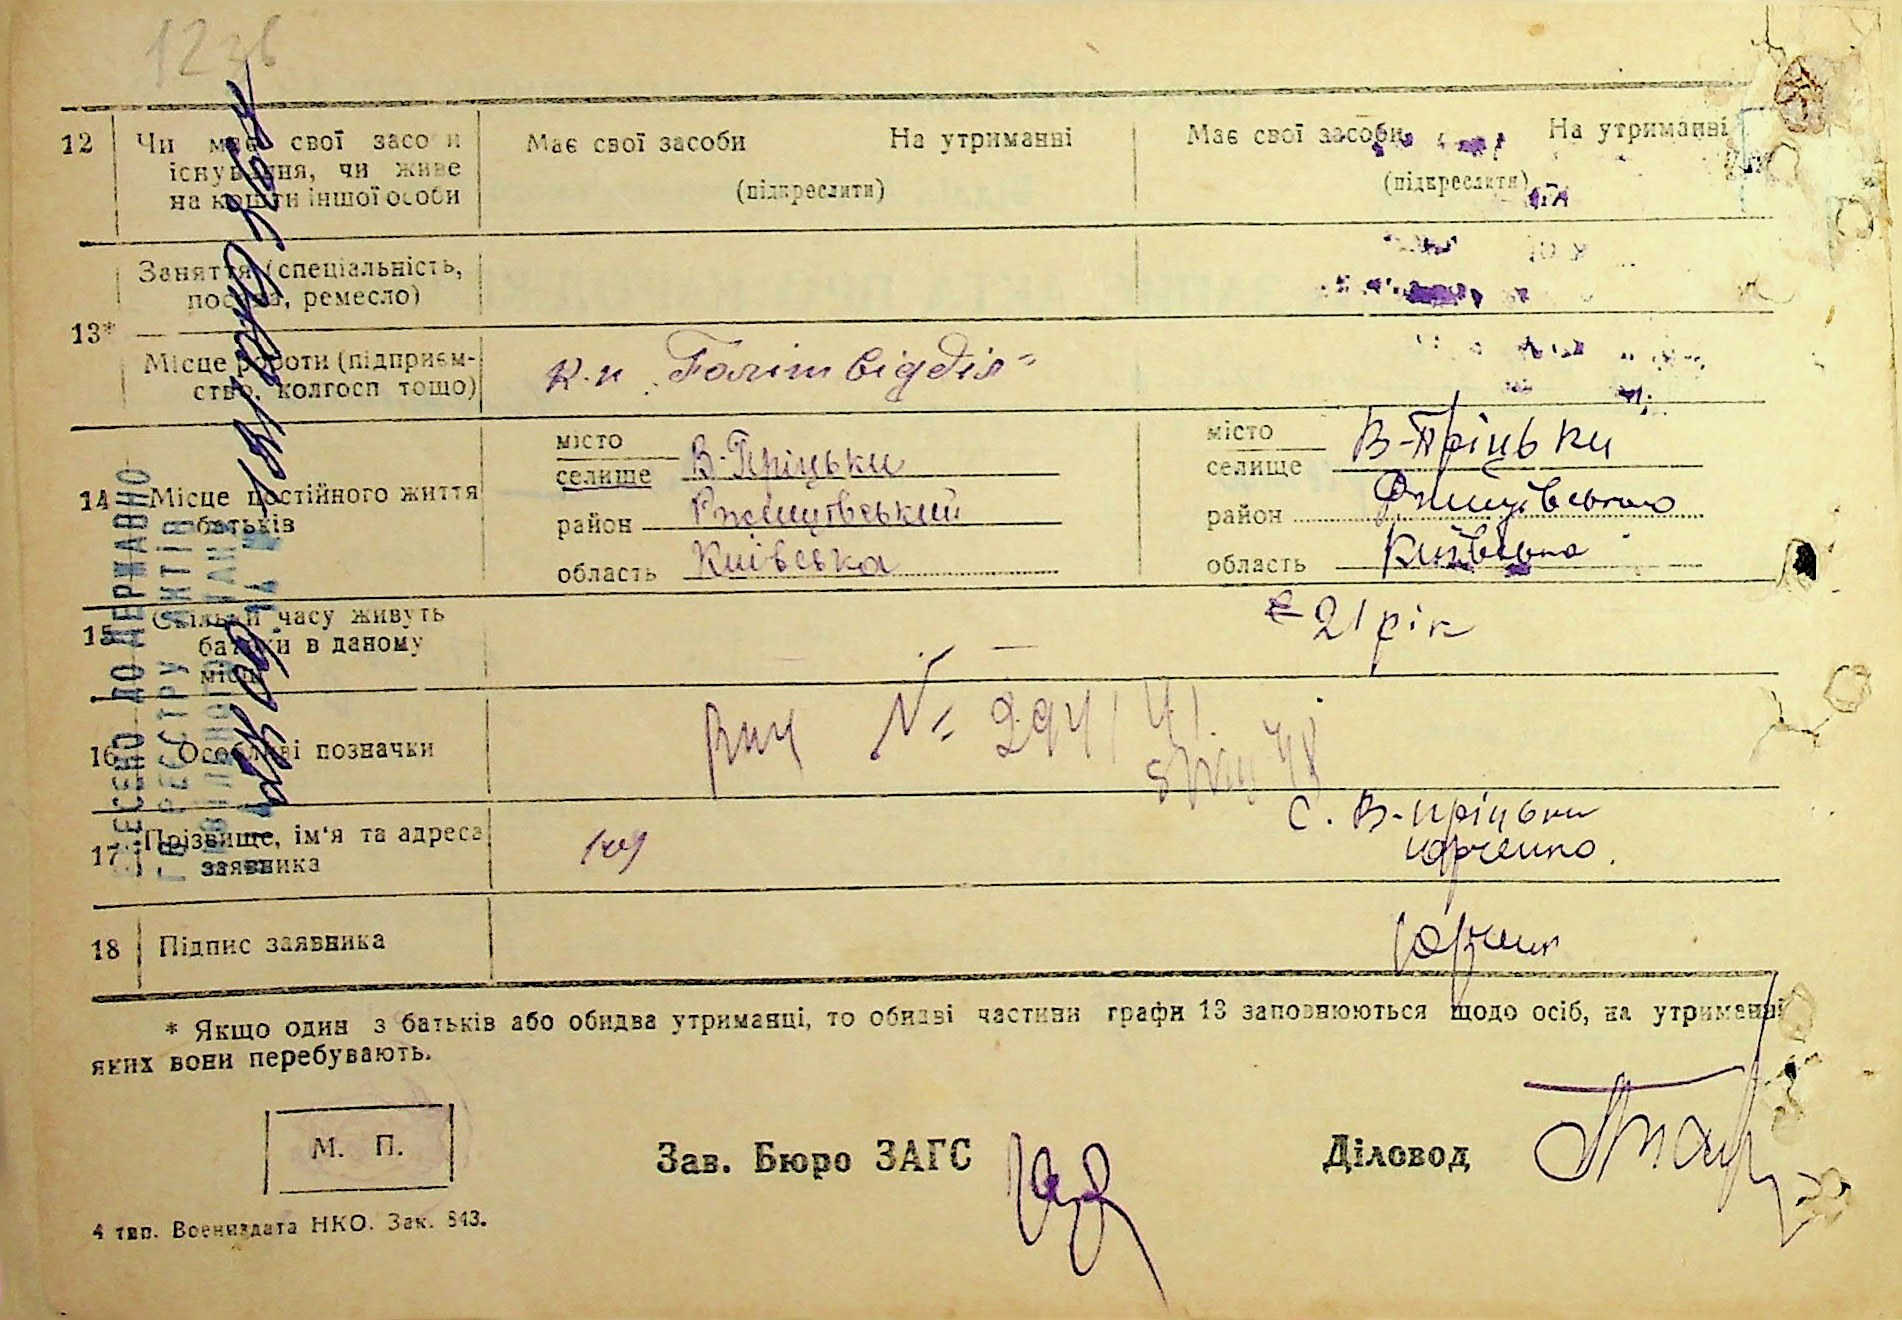 12 зв
12 Чи має свої засоби Має свої засоби На утриманні Має свої засоби На утриманні
існування, чи живе (підкреслити) (підкреслити)
на кошти іншої особи
Заняття (спеціальність,
посада, ремесло)
13*
Місце роботи (підприєм- к-п „Політвідділ"
ство, колгосп тощо)
14 Місце постійного життя батьків
місто
селище В-Пріцьки
район Ржищівський
область Київська
місто
селище В-Пріцьки
район Ржищівського
область Київська
15 Скільки часу живуть
батьки в даному 21 рік
місці
16 Особливі позначки № 294
17 Прізвище, ім'я та адреса с. В-Пріцьки
заявника Юрченко.
18 Підпис заявника
* Якщо один з батьків або обидва утриманці, то обидві частини графи 13 заповнюються щодо осіб, на утриманні
яких вони перебувають.
М. П.
Зав. Бюро ЗАГС Діловод
4 тип. Воениздата НКО. Зак. 843.
ВНЕСЕНО ДО ДЕРЖАВНО
ГО РЕЄСТРУ АКТІВ
ЦИВІЛЬНОГО СТАНУ